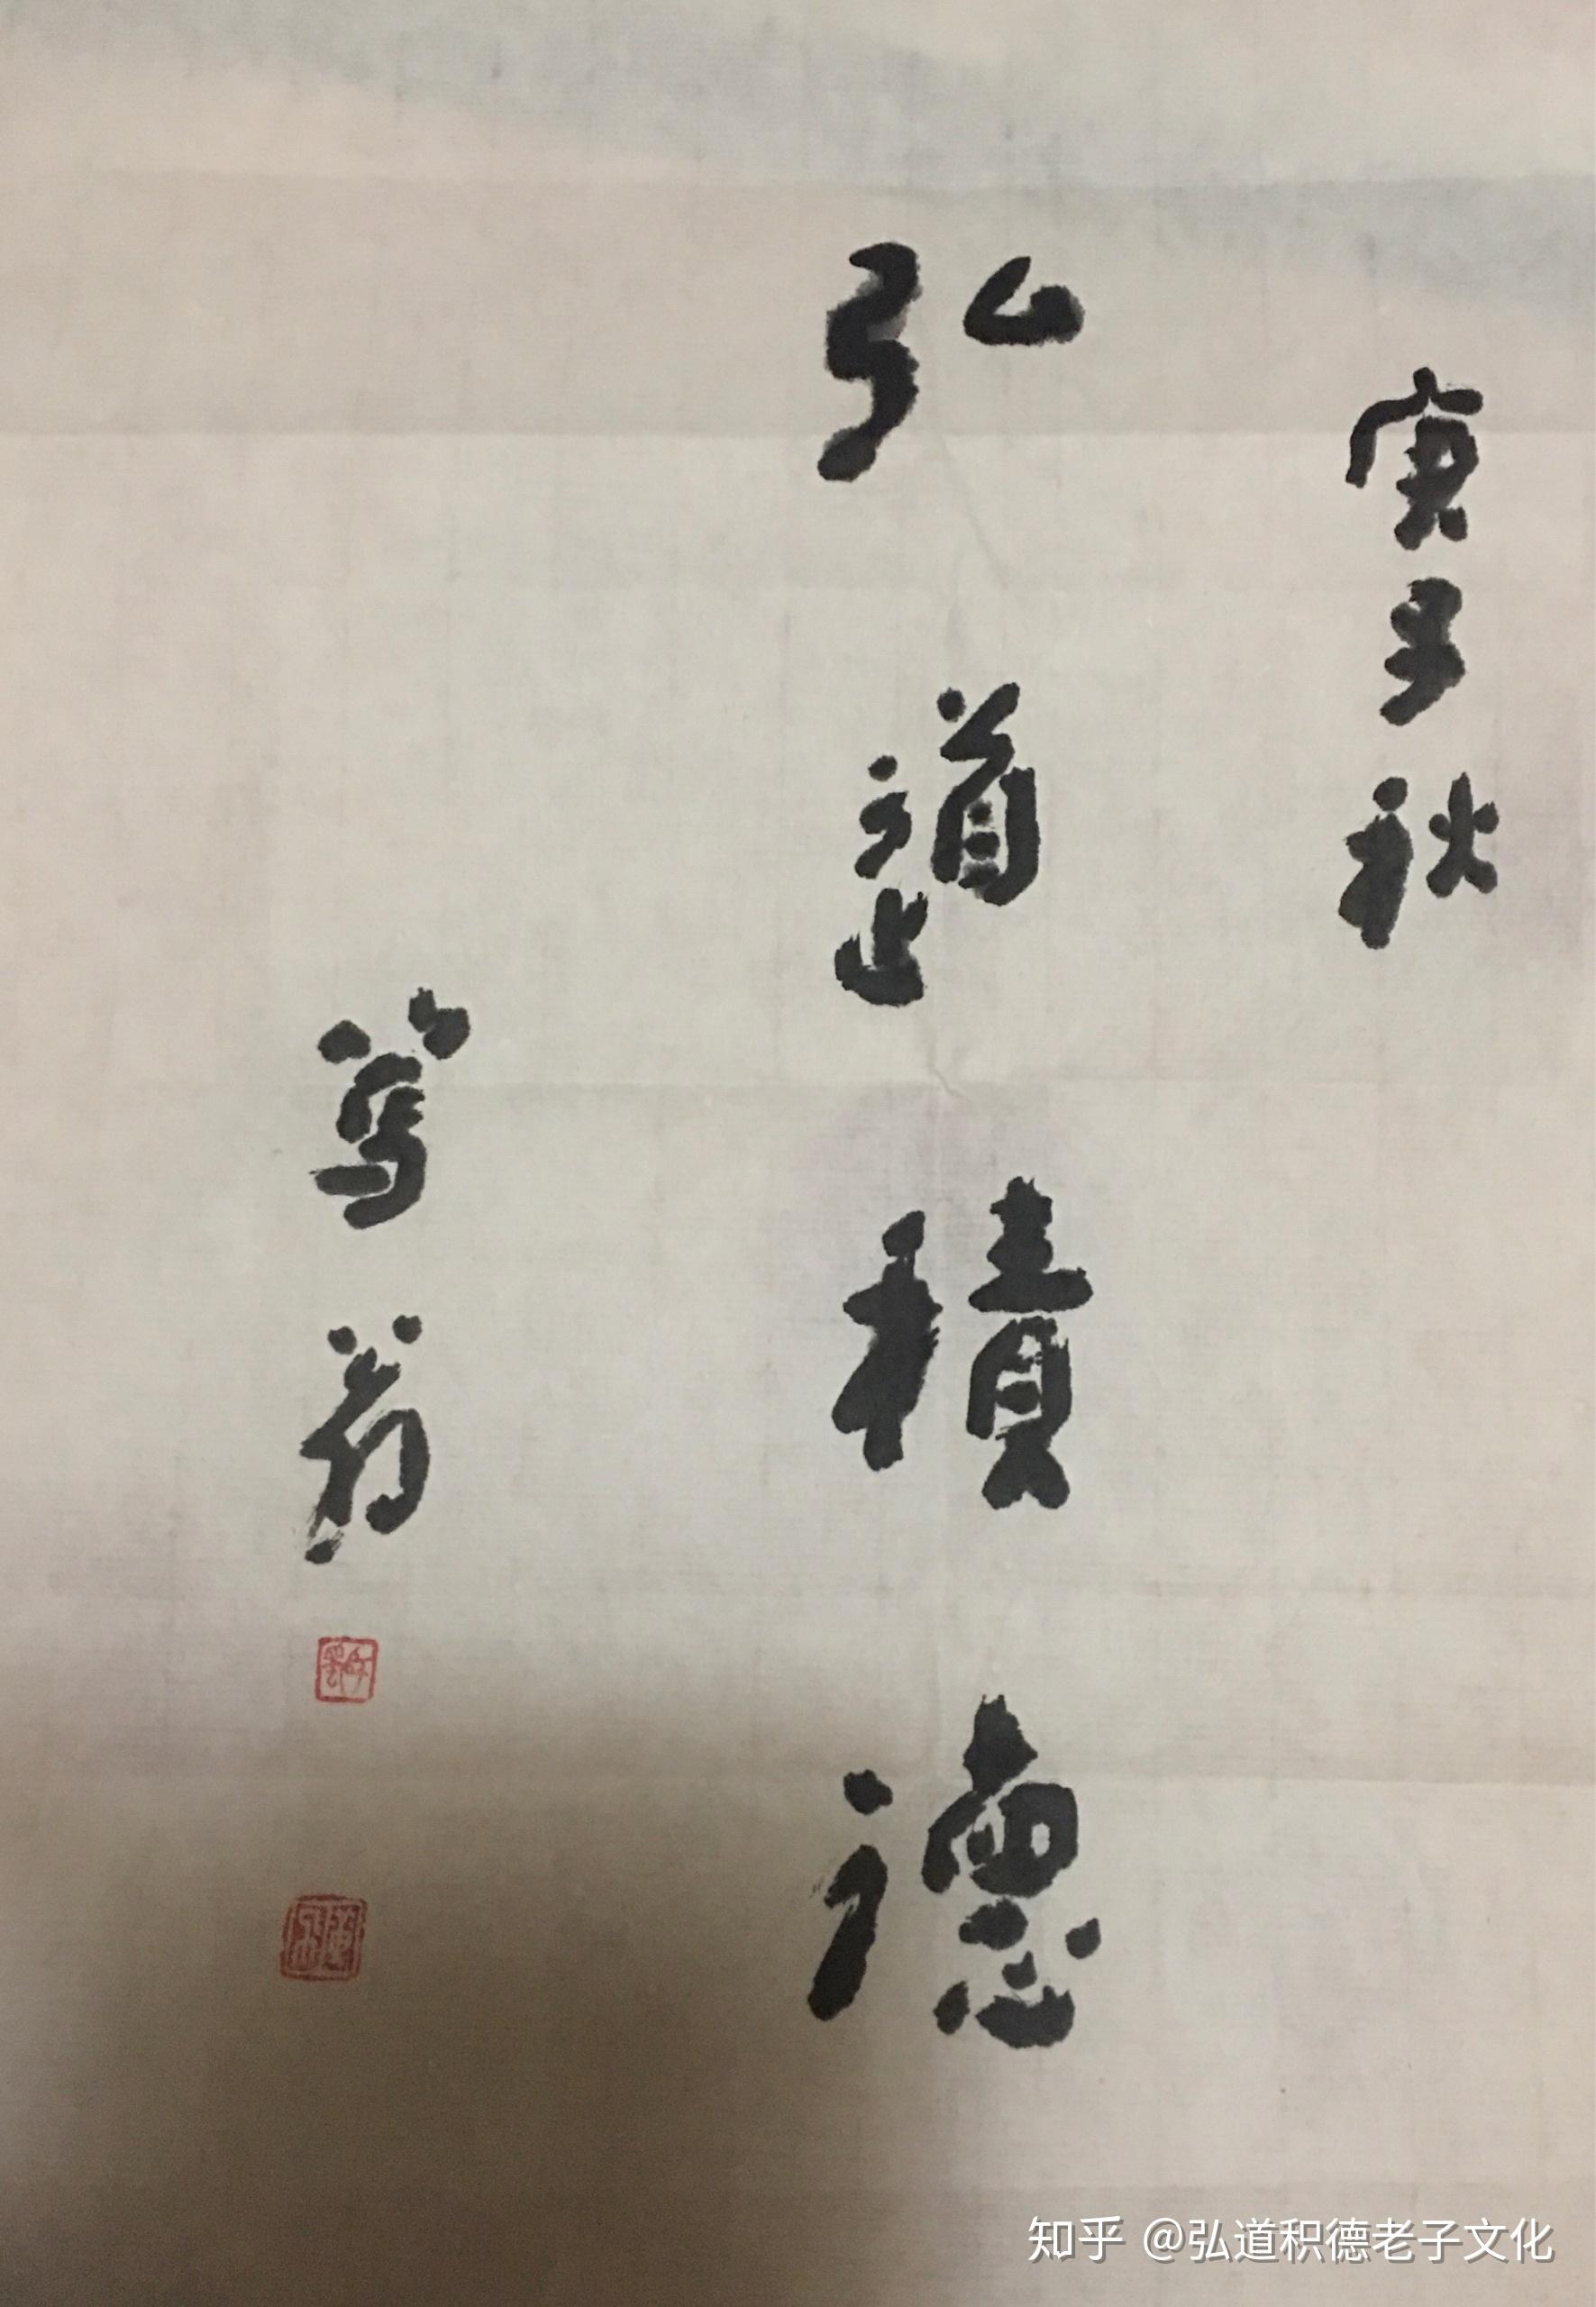 庚子秋
弘道積德
篤翁
知乎 @弘道积德老子文化